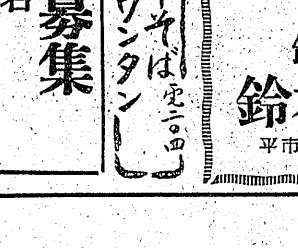 鈴
平市
そば電二〇四
ワンタン
募集